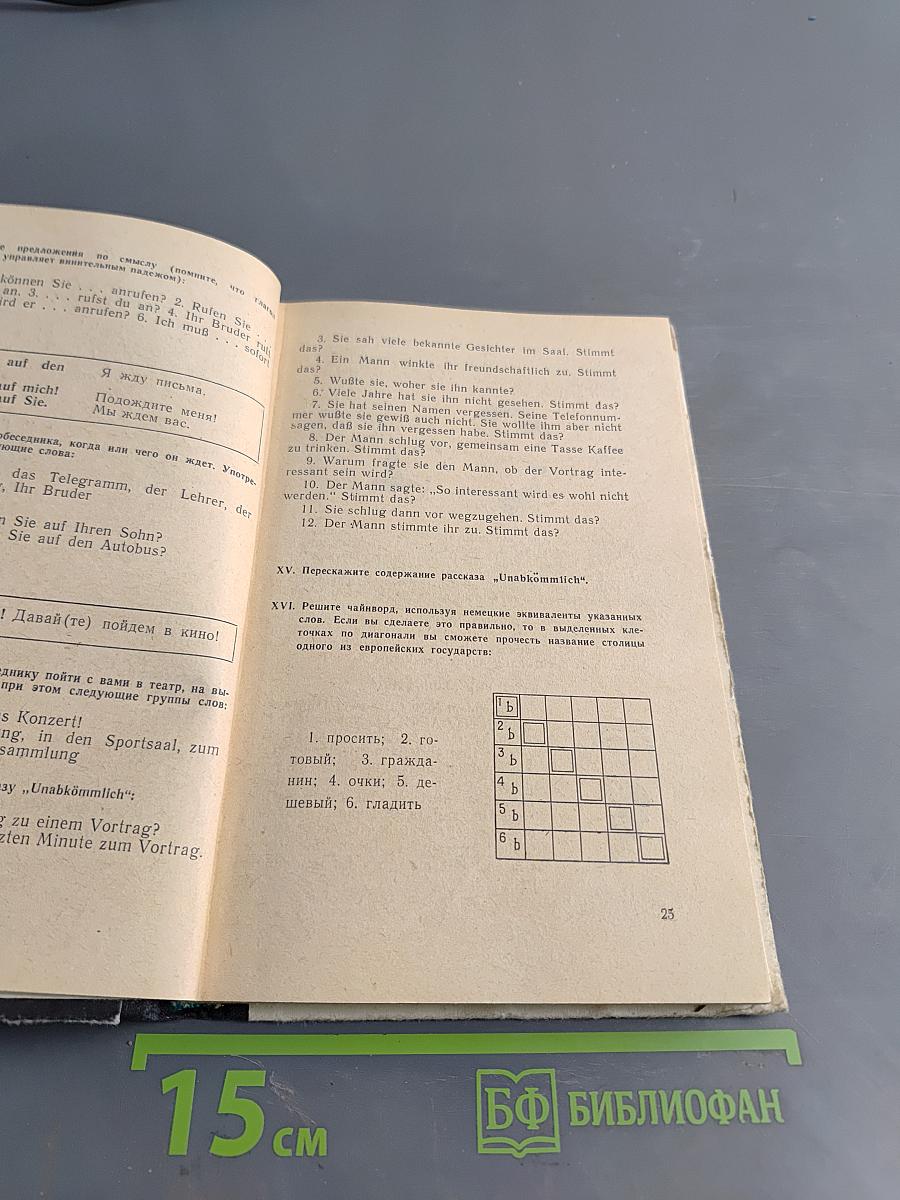 е предложения по смыслу (помните, что глагол
управляет винительным падежом):
können Sie . . . anrufen? 2. Rufen Sie . .
an. 3. . . . rufst du an? 4. Ihr Bruder ruft
ird er . . . anrufen? 6. Ich muß . . . sofort
auf den
Я жду письма.
auf mich!
Подождите меня!
auf Sie.
Мы ждем вас.
обеседника, когда или чего он ждет. Употре-
ующие слова:
das Telegramm, der Lehrer, der
, Ihr Bruder
n Sie auf Ihren Sohn?
Sie auf den Autobus?
! Давай(те) пойдем в кино!
еднику пойти с вами в театр, на вы-
при этом следующие группы слов:
s Konzert!
ng, in den Sportsaal, zum
sammlung
зу „Unabkömmlich“:
g zu einem Vortrag?
zten Minute zum Vortrag.
3. Sie sah viele bekannte Gesichter im Saal. Stimmt
das?
4. Ein Mann winkte ihr freundschaftlich zu. Stimmt
das?
5. Wußte sie, woher sie ihn kannte?
6. Viele Jahre hat sie ihn nicht gesehen. Stimmt das?
7. Sie hat seinen Namen vergessen. Seine Telefonnum-
mer wußte sie gewiß auch nicht. Sie wollte ihm aber nicht
sagen, daß sie ihn vergessen habe. Stimmt das?
8. Der Mann schlug vor, gemeinsam eine Tasse Kaffee
zu trinken. Stimmt das?
9. Warum fragte sie den Mann, ob der Vortrag inte-
ressant sein wird?
10. Der Mann sagte: „So interessant wird es wohl nicht
werden.“ Stimmt das?
11. Sie schlug dann vor wegzugehen. Stimmt das?
12. Der Mann stimmte ihr zu. Stimmt das?
XV. Перескажите содержание рассказа „Unabkömmlich“.
XVI. Решите чайнворд, используя немецкие эквиваленты указанных
слов. Если вы сделаете это правильно, то в выделенных кле-
точках по диагонали вы сможете прочесть название столицы
одного из европейских государств:
1. просить; 2. го-
товый; 3. гражда-
нин; 4. очки; 5. де-
шевый; 6. гладить
1 b
2 b
3 b
4 b
5 b
6 b
25
15 см
БФ БИБЛИОФАН